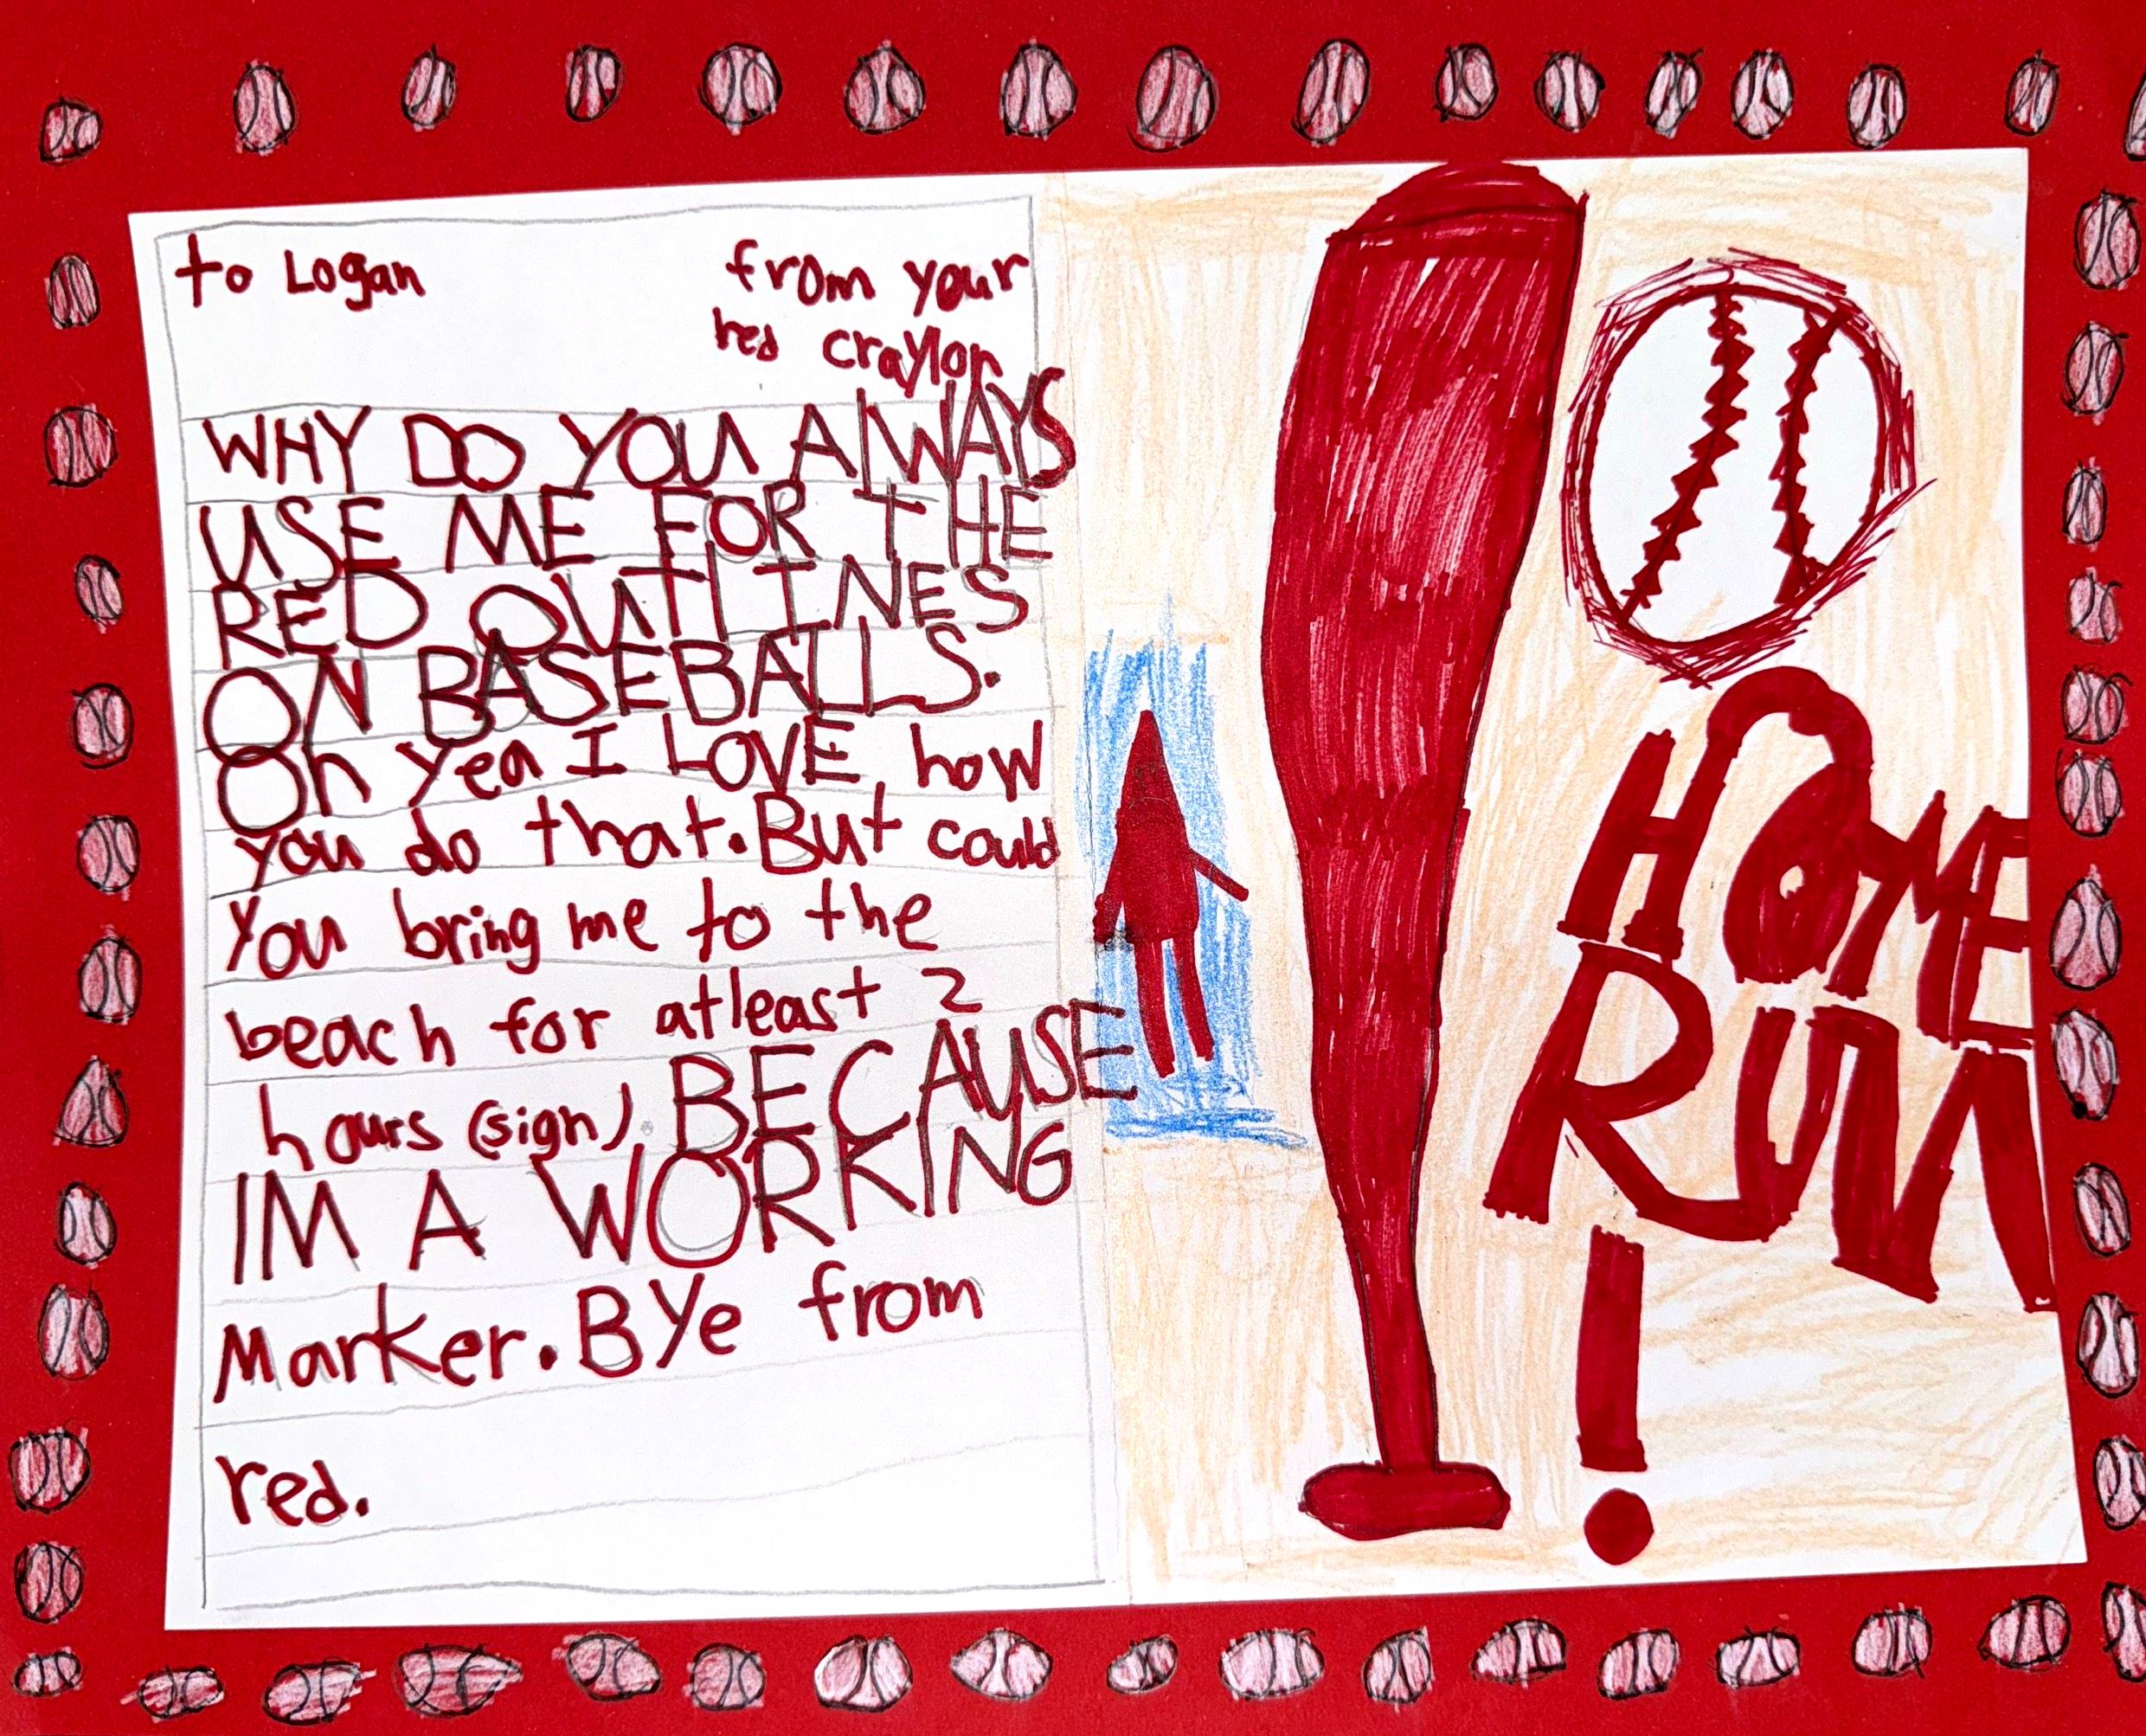 to Logan
from your
red craylon
WHY DO YOU AlWAYS
USE ME FOR THE
RED OUTlINES
ON BASEBALLS.
Oh yea I LOVE how
you do that. But could
you bring me to the
beach for atleast 2
hours (sign). BECAUSE
IM A WORKING
Marker. BYe from
red.
HOME
RUN
!